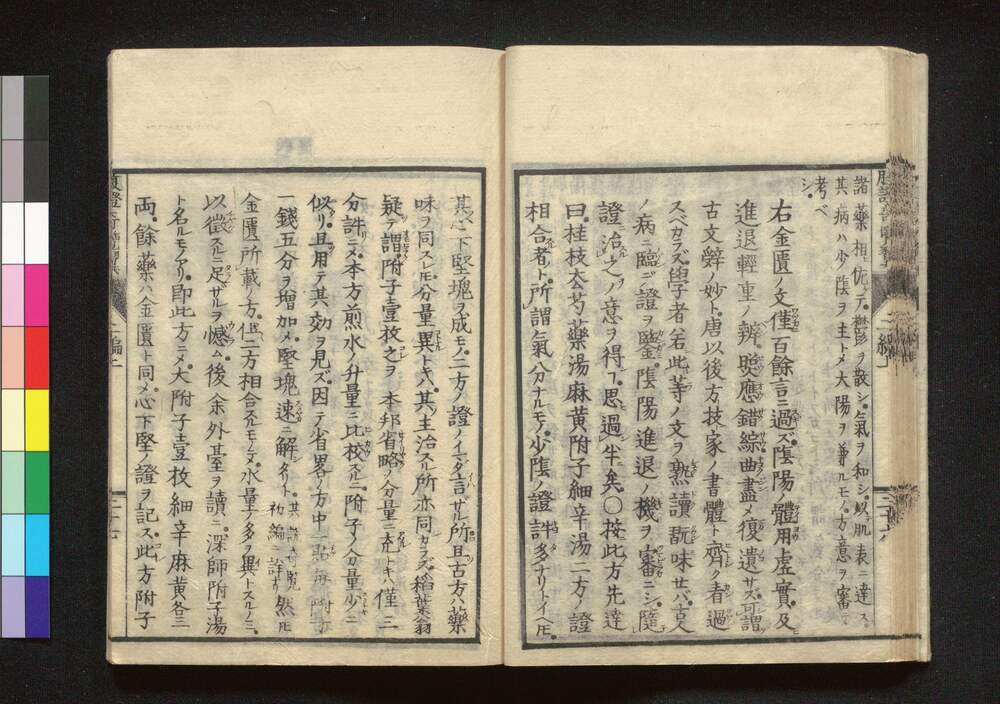 諸藥相佐テ鬱ヲ散シ氣ヲ和シ以肌表ニ達ス
其病ハ少陰ヲ主トメ大陽ヲ兼ルモノ方意ヲ審ニ
考ベシ
右金匱ノ文僅百餘言ニ過ズ陰陽ノ體用虚實及ヒ
進退輕重ノ辨照應錯綜曲盡メ復遺サズ可謂
古文辭ノ妙ト唐以後方技家ノ書體ト齊ク看過
スベカラズ學者若此等ノ文ヲ熟讀翫味セバ古人
ノ病ニ臨ンデ證ヲ鑒陰陽進退ノ機ヲ審ニシ隨
證治之ノ意ヲ得ヿ思過半矣〇按此方先達
曰桂枝去芍藥湯麻黄附子細辛湯二方ノ證
相合者ト所謂氣分ナルモノ少陰ノ證許多ナリトイヘ𪜈
其心下堅塊ヲ成モノ二方ノ證ノイマダ言ザル所且古方ハ藥
味ヲ同スレ𪜈分量異トキハ其主治スル所亦同カラズ稻葉翁
疑テ謂附子壹枚之ヲ本邦省略ノ分量ニ充トキハ僅ニ
分許ニメ本方煎水ノ升量ニ比校スルニ附子ノ分量少ニ
似リ且用テ其効ヲ見ズ因テ省畧ノ方中一貼毎附子
一錢五分ヲ増加メ堅塊速ニ解シタリト 然𪜈
金匱所載ノ方但二方相合スルモノニメ水量ノ多ヲ異トスルノミ
以徴スルニ足ザルヲ憾ム後余外臺ヲ讀ニ深師附子湯
ト名ルモノアリ即此方ニメ大附子壹枚細辛麻黄各三
両餘藥ハ金匱ト同メ心下堅ノ證ヲ記ス此方附子